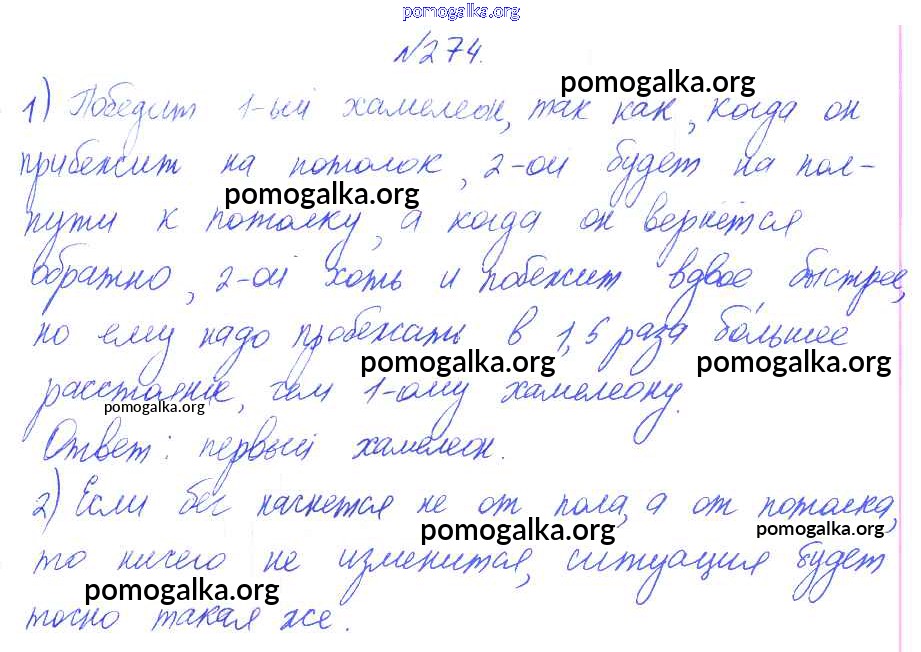 pomogalka.org
№274.
pomogalka.org
1) Победит 1-ый хамелеон, так как, когда он
прибежит на потолок, 2-ой будет на пол-
pomogalka.org
пути к потолку, а когда он вернётся
обратно, 2-ой хоть и побежит вдвое быстрее,
но ему надо пробежать в 1,5 раза бо́льшее
pomogalka.org pomogalka.org
расстояние, чем 1-ому хамелеону.
pomogalka.org
Ответ: первый хамелеон.
2) Если бег начнется не от пола, а от потолка,
pomogalka.org pomogalka.org
то ничего не изменится, ситуация будет
pomogalka.org
точно такая же.